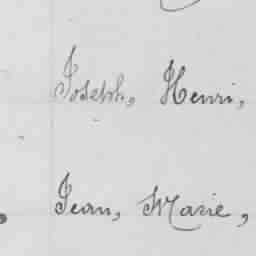 Joseph, Henri,
Jean, Marie,